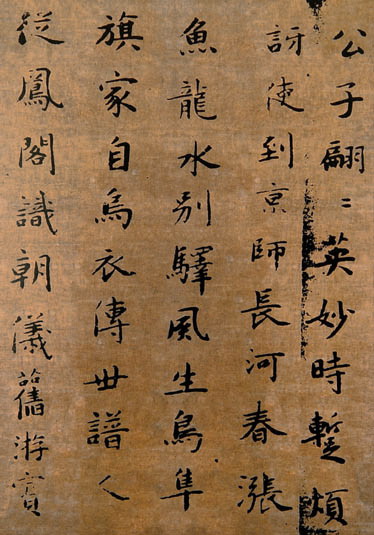 公子翩〻英妙時蹔煩
訝使到京師長河春漲
魚龍水別驛風生鳥隼
旗家自烏衣傳世譜人
從鳳閣識朝儀舊游賞